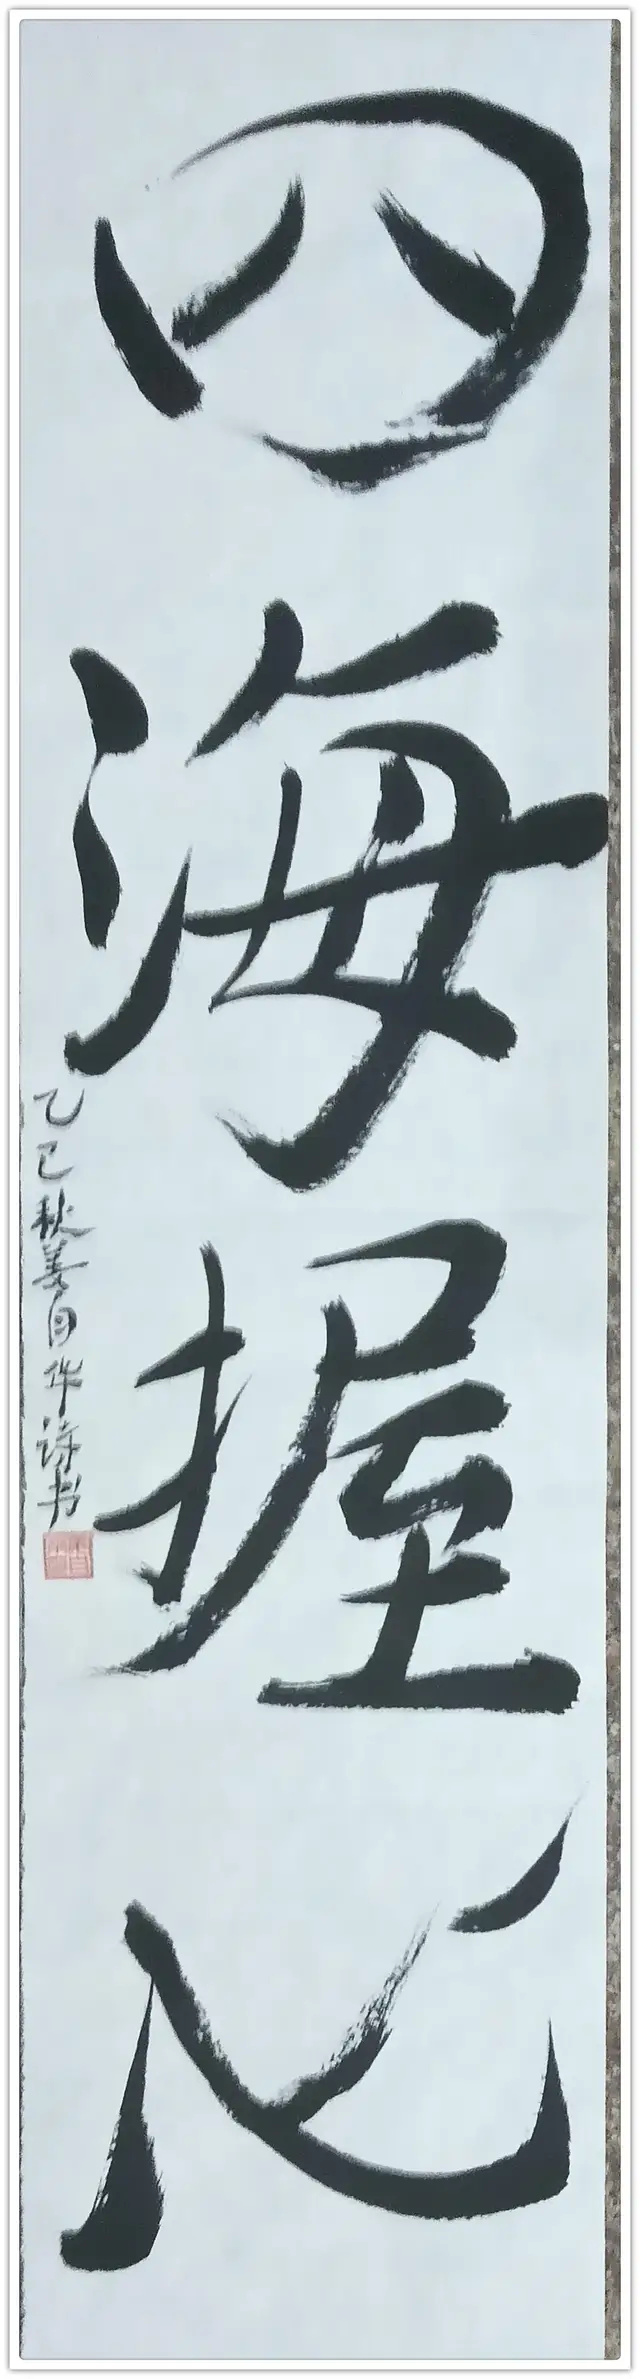 四海握心
乙巳秋姜自华诗书